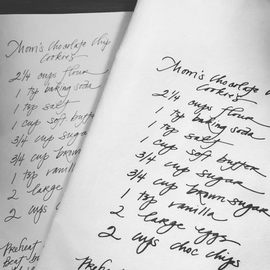 Mom's Chocolate Chip
Cookies
2 1/4 cups flour
1 tsp baking soda
1 tsp salt
1 cup soft butter
3/4 cup sugar
3/4 cup brown
1 tsp vanilla
2 large
2 cups
Preheat
Mom's Chocolate
Cookies
2 1/4 cups flour
1 tsp baking soda
1 tsp salt
1 cup soft butter
3/4 cup sugar
3/4 cup brown sugar
1 tsp vanilla
2 large eggs
2 cups choc chips
Preheat